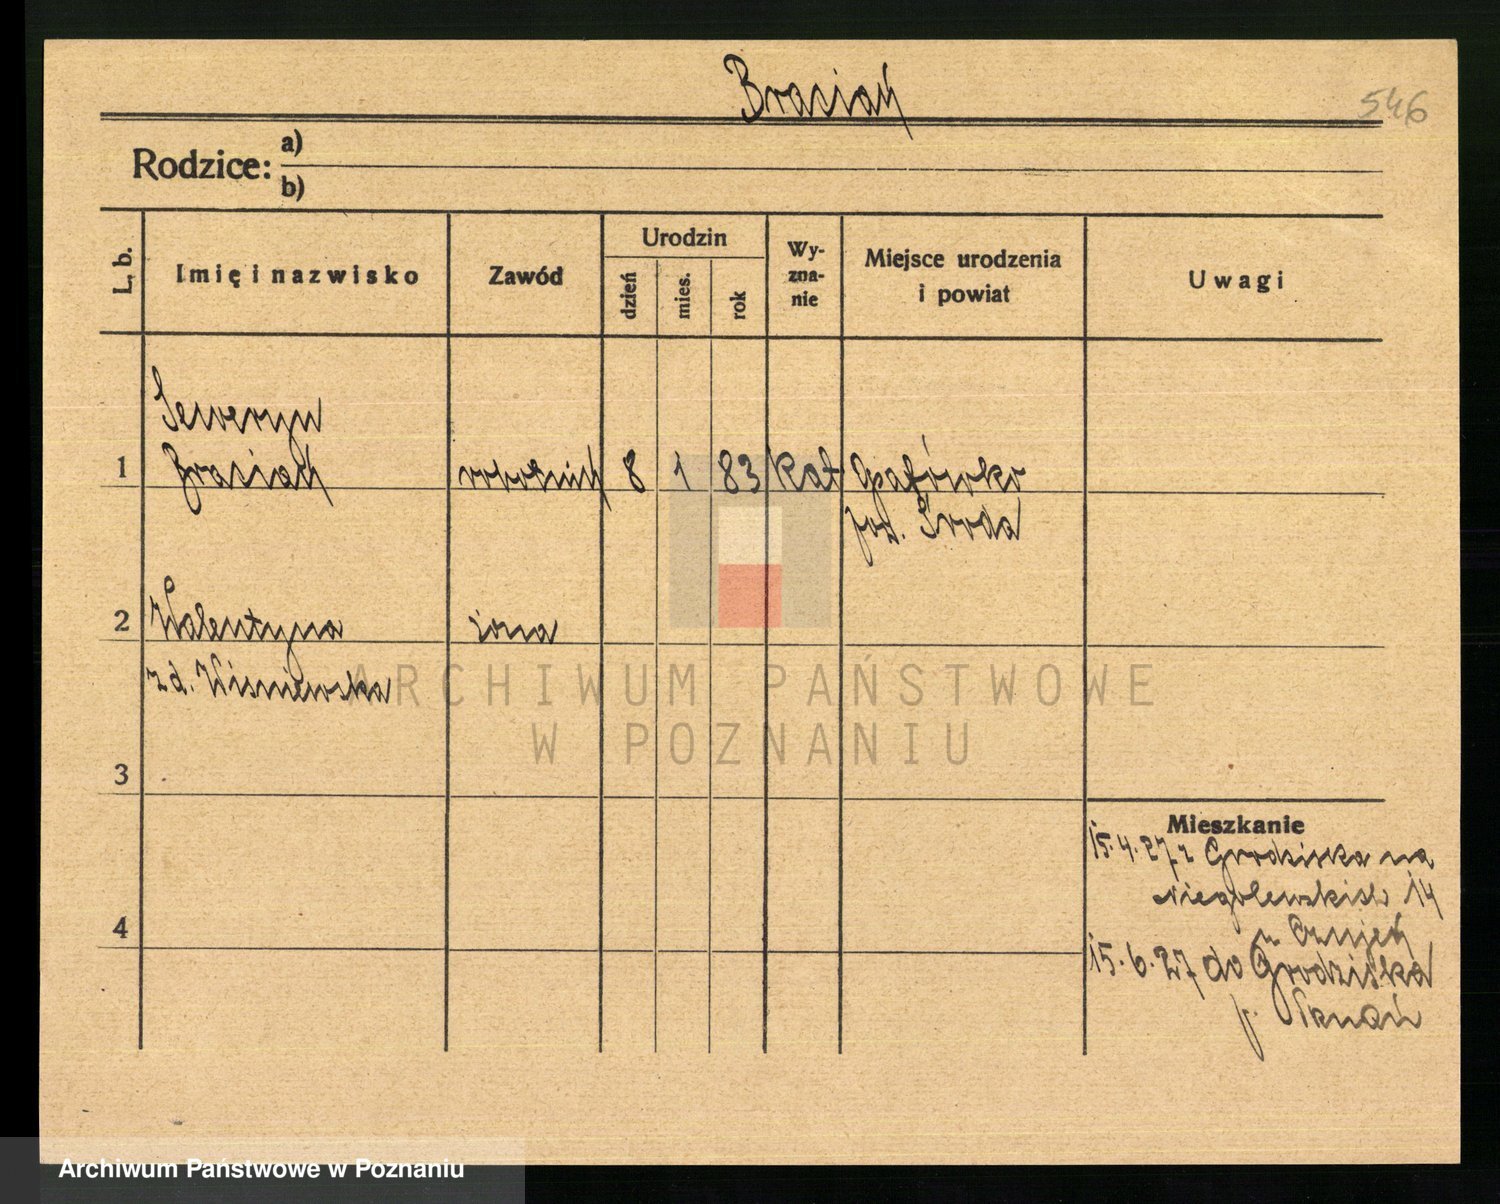 Brasiak
546
Rodzice: a)
b)
L. b.
Imię i nazwisko
Zawód
Urodzin
dzień
mies.
rok
Wy-
zna-
nie
Miejsce urodzenia
i powiat
Uwagi
1
Seweryn
Brasiak
robotnik
8
1
83
kat
pow. Środa
2
Walentyna
żona
zd. Wiśniewska
3
4
Mieszkanie
15.4.27 z Grodziska na
Niegolewskich 14
u
15.6.27 do Grodziska
p.
ARCHIWUM PAŃSTWOWE
W POZNANIU
Archiwum Państwowe w Poznaniu